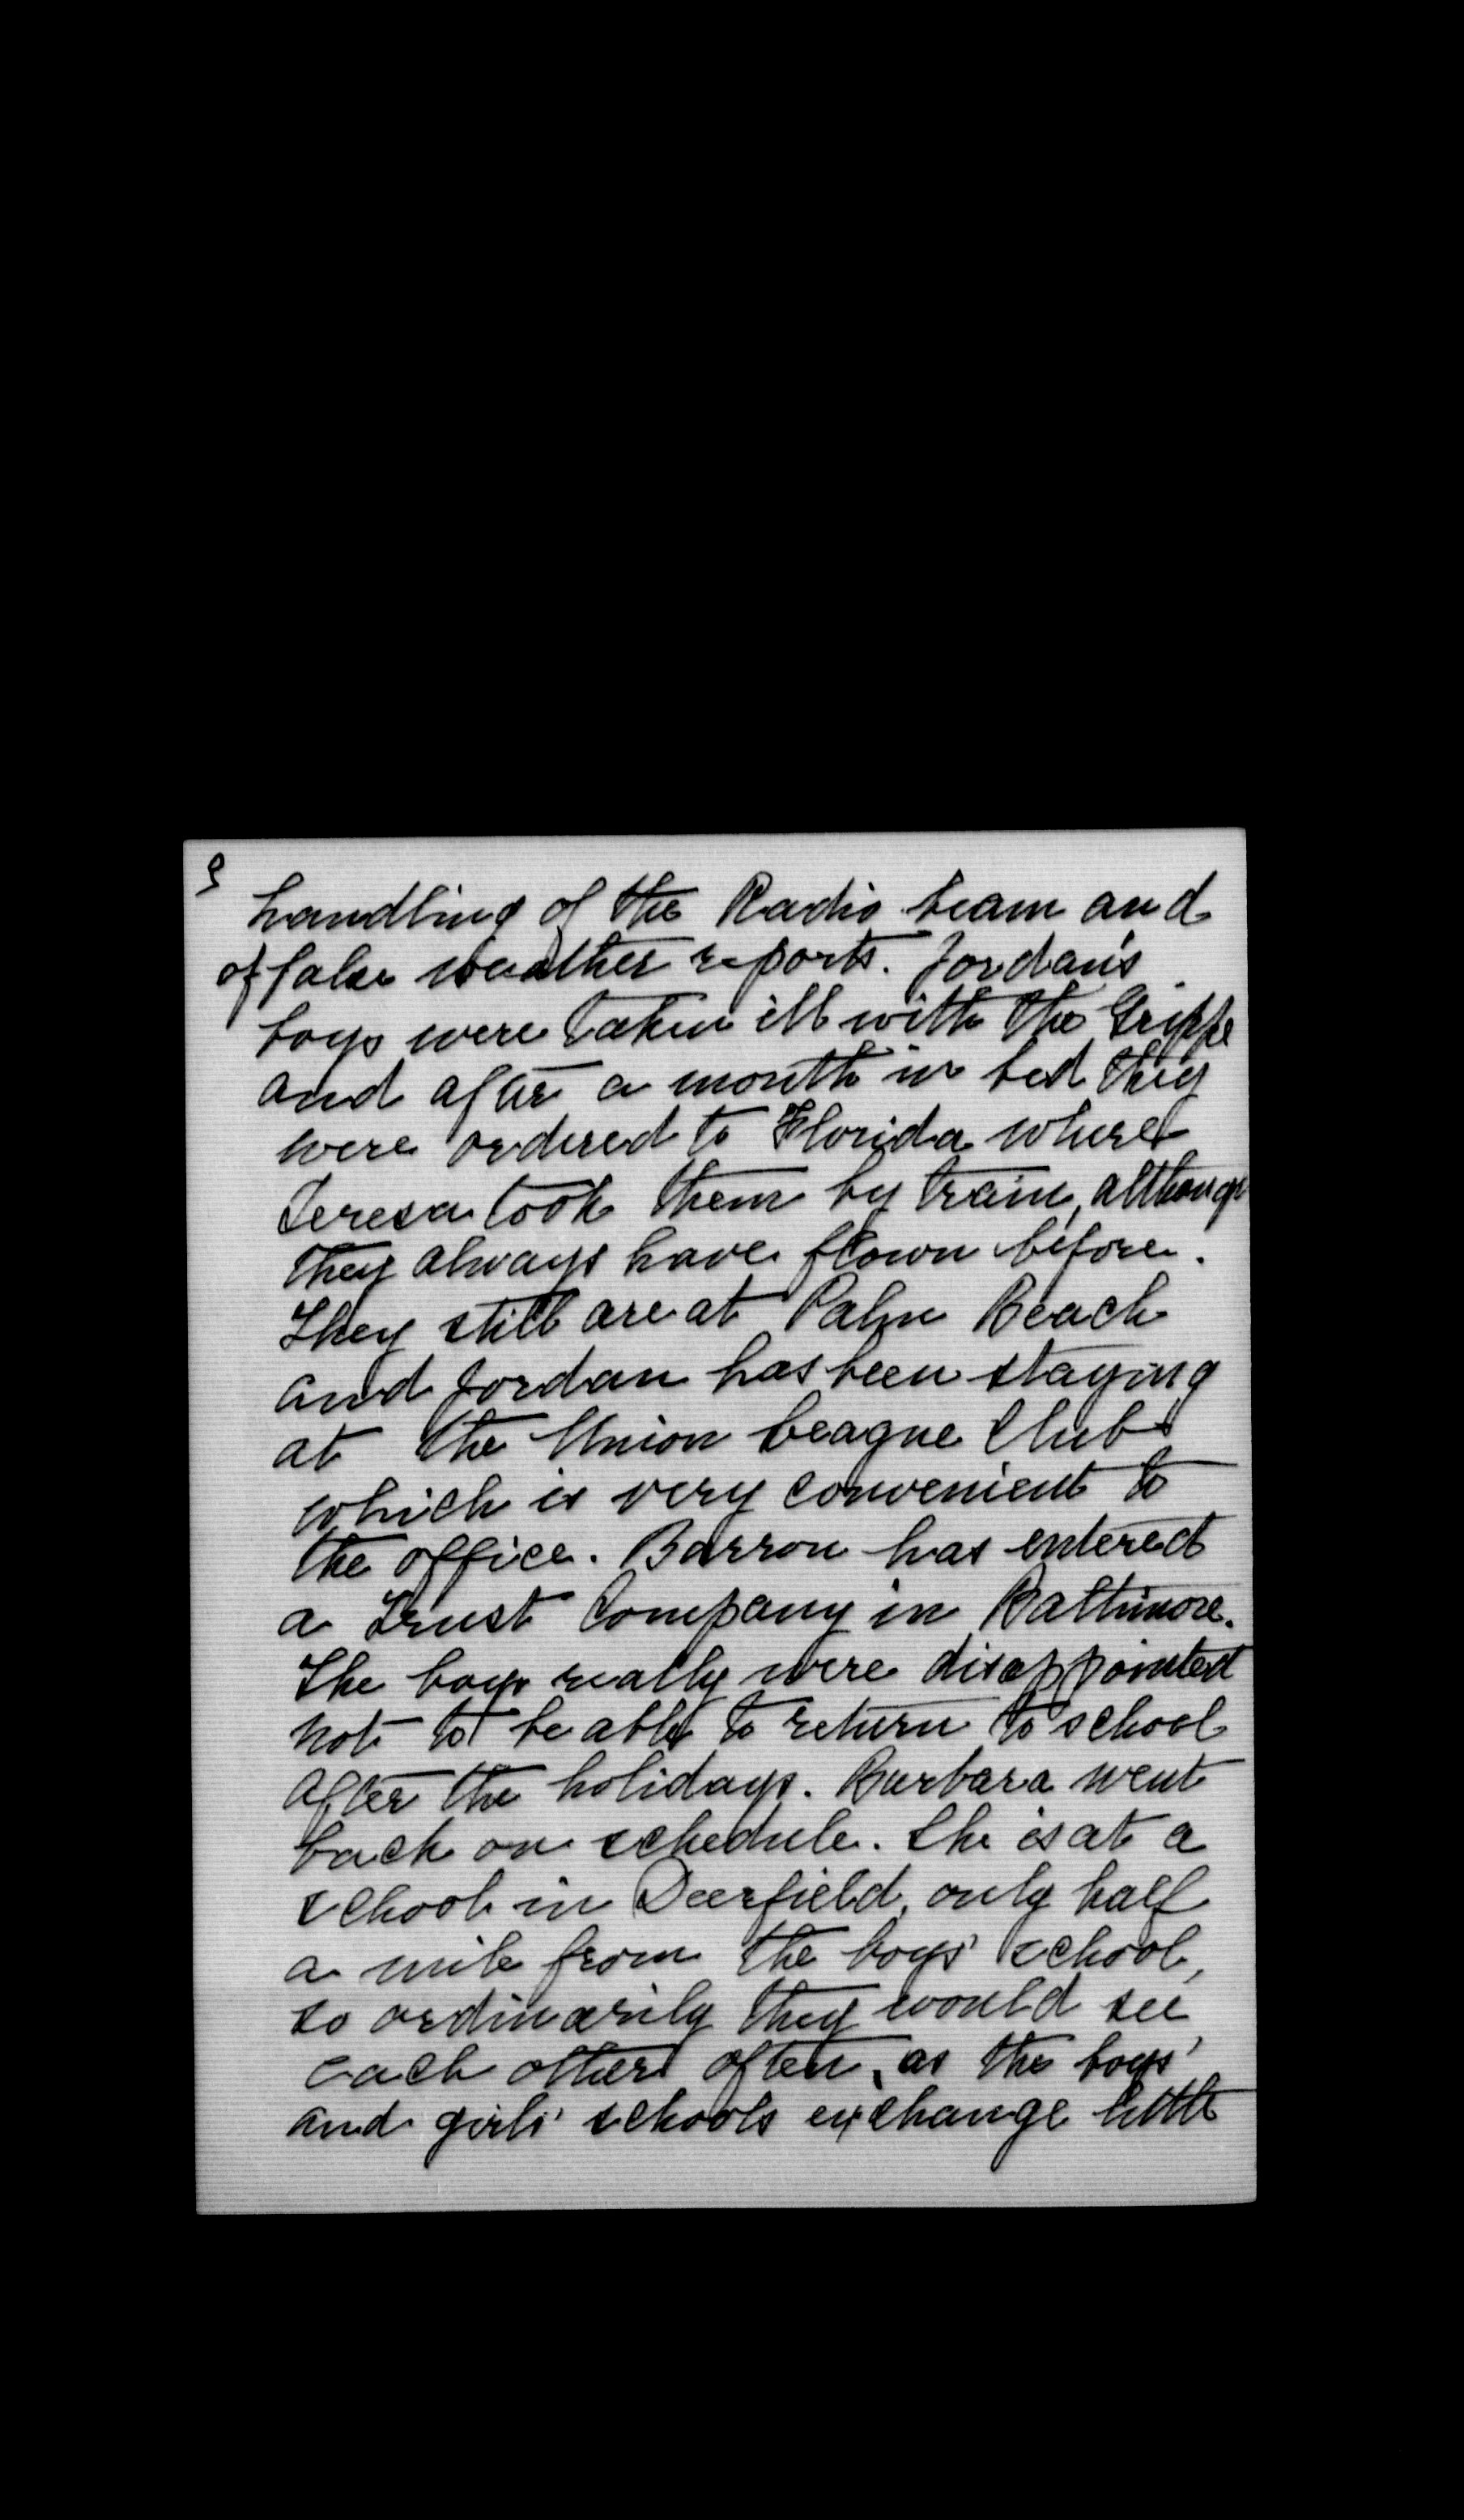 3
handling of the Radio beam and
of false weather reports. Jordan's
boys were taken ill with the Grippe
and after a month in bed they
were ordered to Florida where
Teresa took them by train, although
they always have flown before.
They still are at Palm Beach
and Jordan has been staying
at the Union League Club
which is very convenient to
the office. Barron has entered
a Trust Company in Balthimore.
The boys really were disappointed
not to be able to return to school
after the holidays. Barbara went
back on schedule. She is at a
school in Deerfield, only half
a mile from the boys' school,
so ordinarily they would see
each other often, as the boys'
and girls' schools exchange little